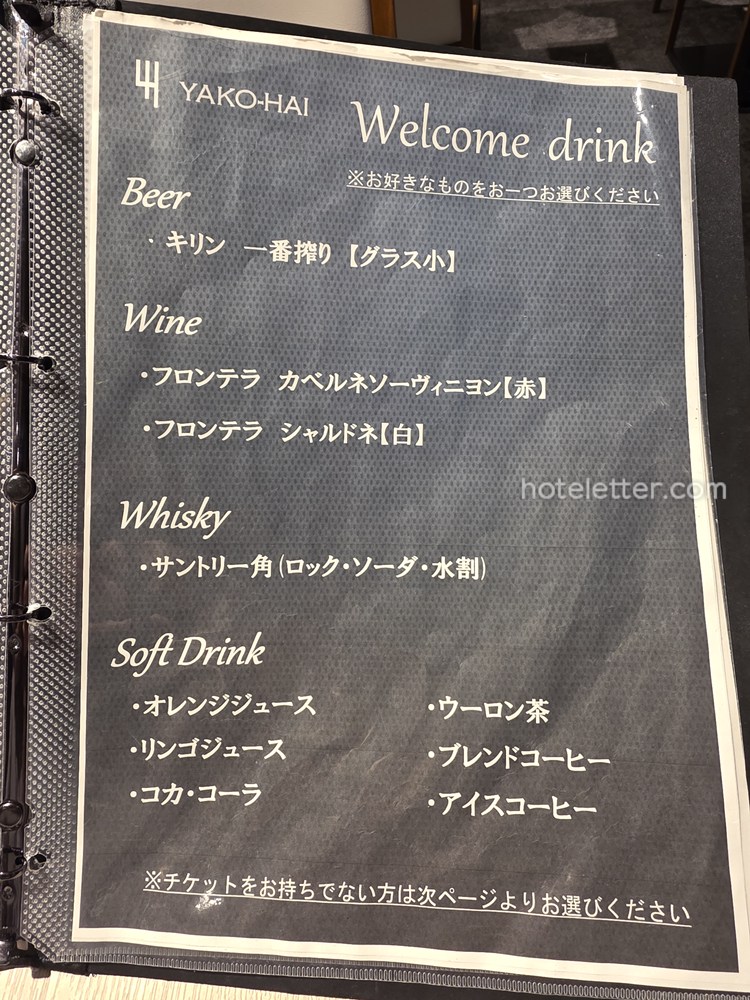 YAKO-HAI
Welcome drink
※お好きなものをお一つお選びください
Beer
・キリン 一番搾り【グラス小】
Wine
・フロンテラ カベルネソーヴィニヨン【赤】
・フロンテラ シャルドネ【白】
hoteletter.com
Whisky
・サントリー角(ロック・ソーダ・水割)
Soft Drink
・オレンジジュース ・ウーロン茶
・リンゴジュース ・ブレンドコーヒー
・コカ・コーラ ・アイスコーヒー
※チケットをお持ちでない方は次ページよりお選びください